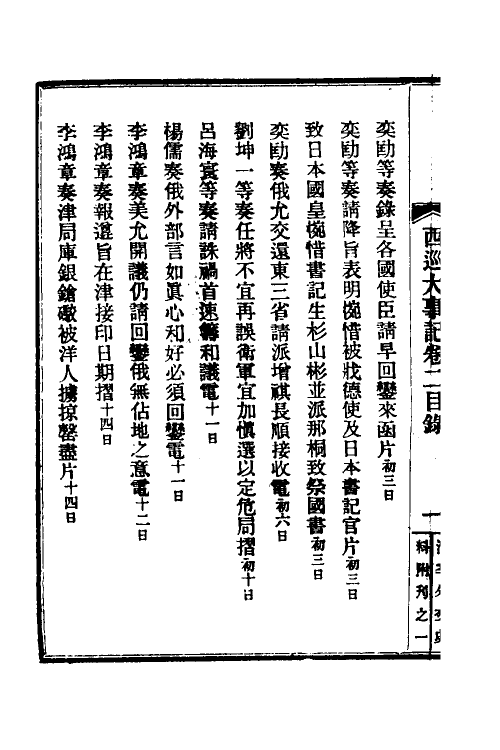 西巡大事記卷二目錄
一
料附刊之一
奕劻等奏錄呈各國使臣請早回鑾來函片初三日
奕劻等奏請降旨表明惋惜被戕德使及日本書記官片初三日
致日本國皇惋惜書記生杉山彬並派那桐致祭國書初三日
奕劻奏俄允交還東三省請派增祺長順接收電初六日
劉坤一等奏任將不宜再誤衛軍宜加愼選以定危局摺初十日
呂海寰等奏請誅禍首速籌和議電十一日
楊儒奏俄外部言如眞心和好必須回鑾電十一日
李鴻章奏美允開議仍請回鑾俄無佔地之意電十二日
李鴻章奏報遵旨在津接印日期摺十四日
李鴻章奏津局庫銀鎗礮被洋人擄掠罄盡片十四日